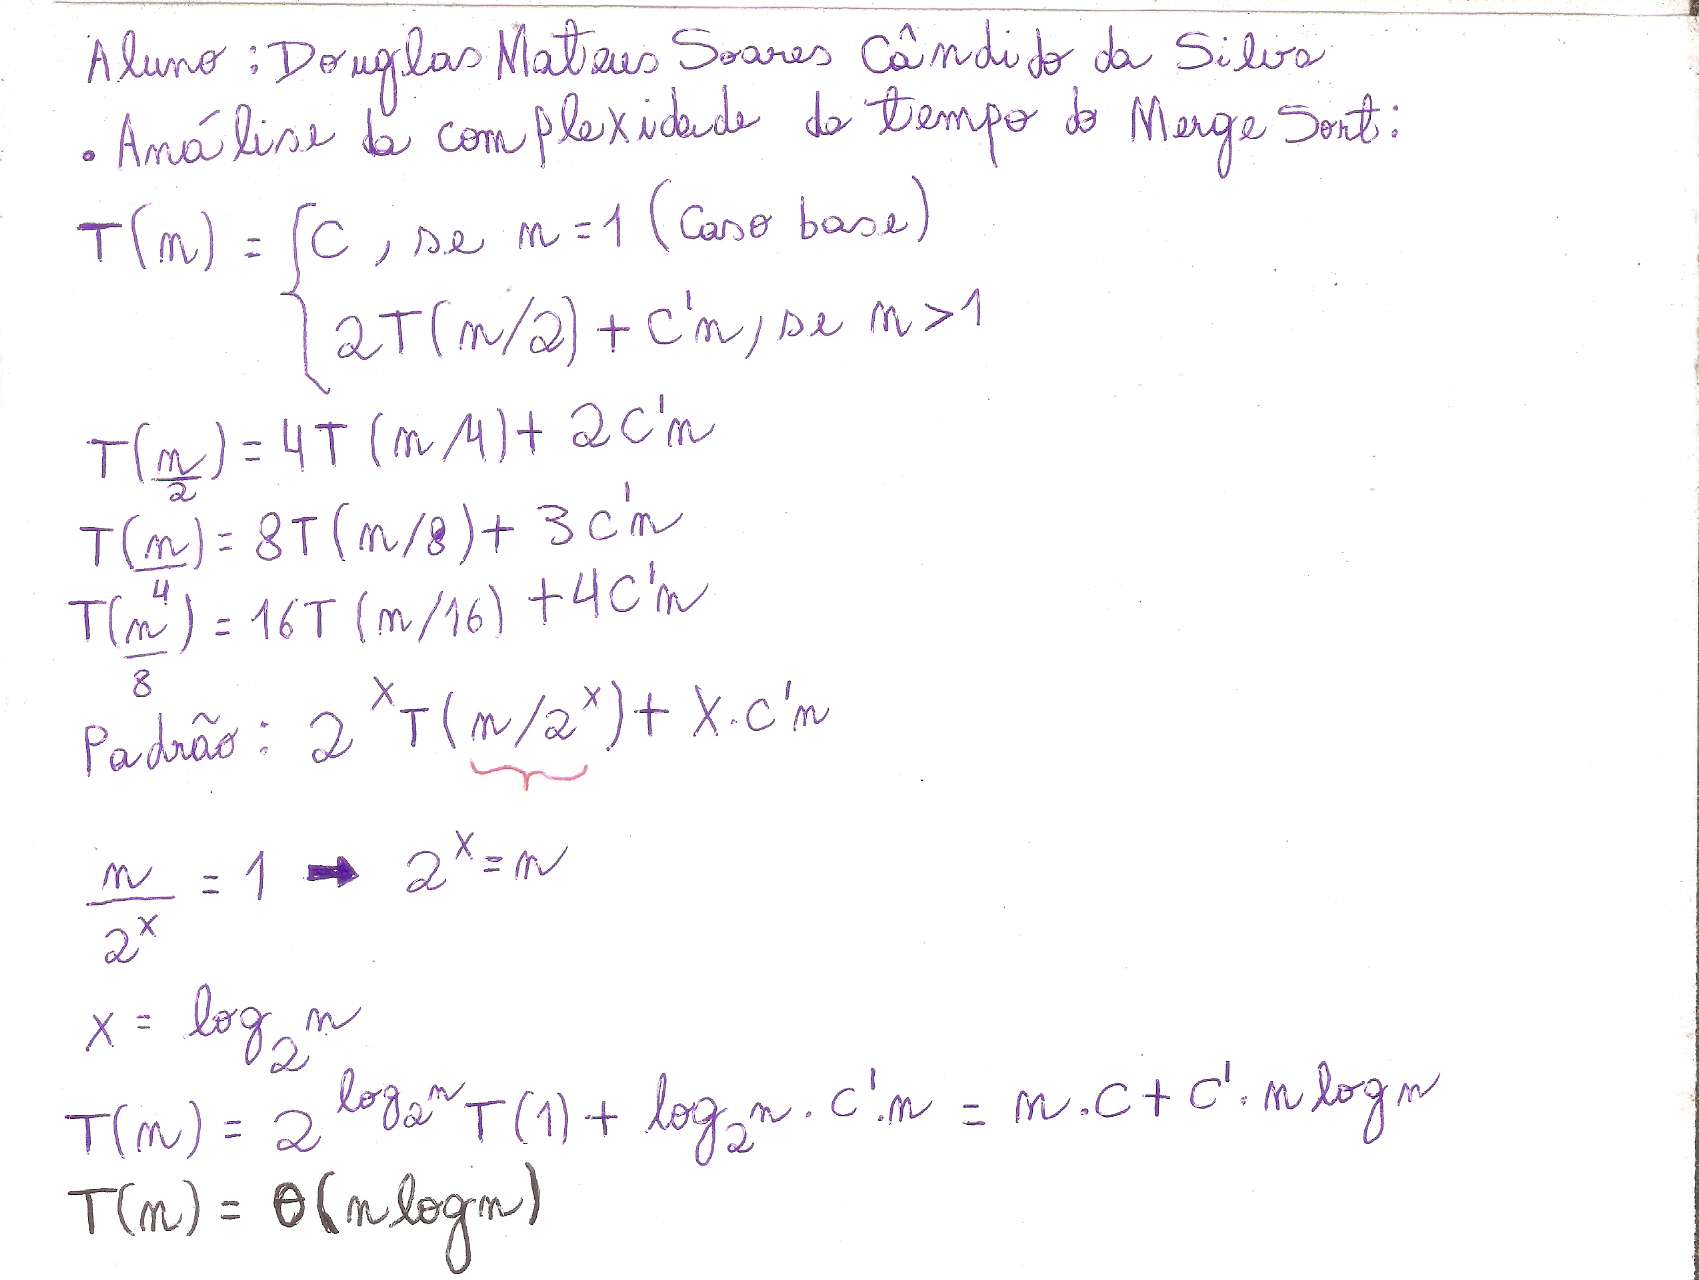 Aluno: Douglas Mateus Soares Cândido da Silva
• Análise da complexidade do tempo do Merge Sort:
T(n) = { C, se n = 1 (Caso base)
2T(n/2) + C'n, se n > 1
T(n/2) = 4T(n/4) + 2C'n
T(n/4) = 8T(n/8) + 3C'n
T(n/8) = 16T(n/16) + 4C'n
Padrão: 2^x T(n/2^x) + X.C'n
n/2^x = 1 → 2^x = n
x = log₂n
T(n) = 2^(log₂n) T(1) + log₂n . C'.n = n.C + C'.n log n
T(n) = Θ(n log n)